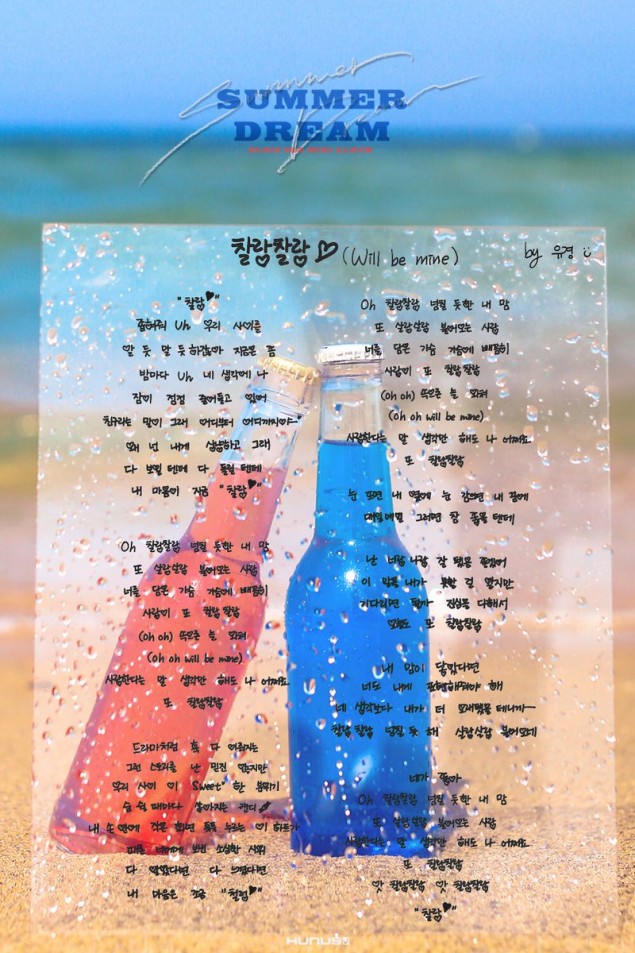 Summer Dream
SUMMER
DREAM
찰랑찰랑 ♡ (Will be mine)
by 유경
"찰랑♥"
좁혀줘 Uh 우리 사이를
알 듯 말 듯 하잖아 지금은 좀
밤마다 Uh 네 생각에 나
잠이 점점 줄어들고 있어
친구라는 말이 그래 어디부터 어디까지야~
왜 넌 내게 상냥하고 그래
다 보일 텐데 다 들릴 텐데
내 마음이 지금 "찰랑♥"
Oh 찰랑찰랑 넘칠 듯한 내 맘
또 살랑살랑 불어오는 사랑
너를 담은 가슴 가슴에 빼곡히
사랑이 또 찰랑찰랑
(oh oh) 뜨거운 눈
(oh oh will be mine)
사랑한다는 말 생각만 해도 나 어쩌요
또 찰랑찰랑
드라마처럼 훅 다
그런 스토리를 난 믿진 않는지만
우리 사이 이 Sweet 한 분위기
숨 쉴 때마다 살아지는
내 손 안에 작은 화면 톡톡 누르는 ♡ 하트가
너에게 보낸 소심한 사인
다 알았다면 다 느꼈다면
내 마음은 지금 "찰랑♥"
Oh 찰랑찰랑 넘칠 듯한 내 맘
또 살랑살랑 불어오는 사랑
너를 담은 가슴 가슴에 빼곡히
사랑이 또 찰랑찰랑
(oh oh) 뜨거운 눈
(oh oh will be mine)
사랑한다는 말 생각만 해도 나 어쩌요
또 찰랑찰랑
눈 뜨면 내 옆에 눈 감으면 내 곁에
매일매일 그러면 참 좋을 텐데
난 너랑 나랑 잘 됐음 좋겠어
이 말을 내가 못할 것 같지만
기다리면 될까 진심을 다해서
오늘도 또 찰랑찰랑
내 맘이 닿았다면
너도 내게 표현해줘야 해
네 생각보다 내가 더 오래됐을 테니까~
찰랑찰랑 넘칠 듯 해 살랑살랑 불어오네
네가 좋아
Oh 찰랑찰랑 넘칠 듯한 내 맘
또 살랑살랑 불어오는 사랑
사랑한다는 말 생각만 해도 나 어쩌요
또 찰랑찰랑
맛 찰랑찰랑 맛 찰랑찰랑
"찰랑♥"
HUNUS